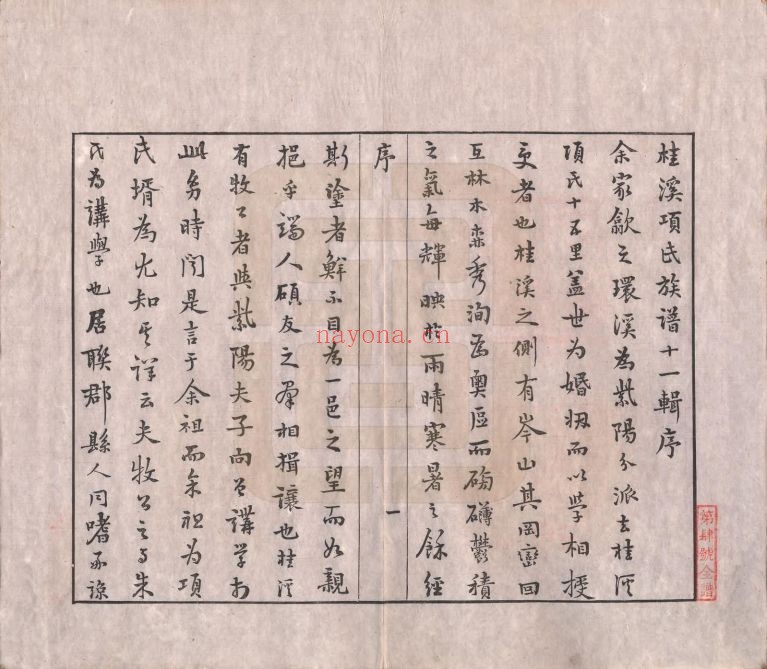 桂溪項氏族譜十一輯序
余家歙之環溪為紫陽分派去桂溪
項氏十五里蓋世為婚姻而以學相授
受者也桂溪之側有岑山其岡巒回
互林木森秀洵為奧區而磅礴鬱積
之氣每輝映於雨晴寒暑之餘經
序
一
斯塗者鮮不目為一邑之望而如親
挹乎端人碩友之羣相揖讓也桂溪
有牧公者與紫陽夫子向曾講學於
此易時聞是言于余祖而余祖為項
氏壻為尤知其詳云夫牧公之與朱
氏為講學也居聯郡縣人同嗜
第肆號全譜
nayona.cn